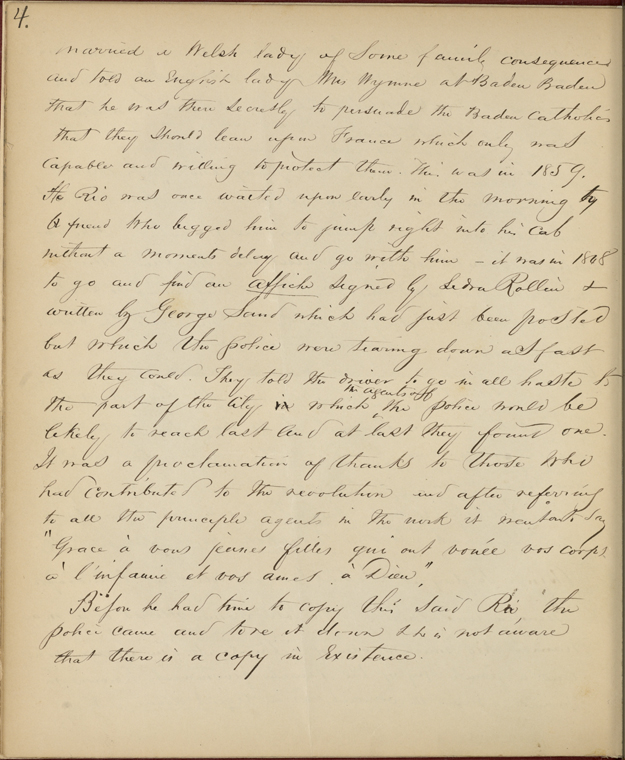 4.
married a Welsh lady of Some family consequence
and told an English lady Mrs Wynne at Baden Baden
that he was then secretly to persuade the Baden Catholics
that they should lean upon France which only was
capable and willing to protect them. This was in 1859.
Rio was once waited upon early in the morning by
a friend who begged him to jump right into his Cab
without a moments delay and go with him – it was in 1848
to go and find an affiche signed by Ledru Rollin &
written by George Sand which had just been posted
but which the police were tearing down as fast
as they could. They told the driver to go in all haste to
the part of the City in which the agents of the police would be
likely to reach last and at last they found one.
It was a proclamation of thanks to those who
had contributed to the revolution and after referring
to all the principle agents in the work it went on to say
"Grace à vous jeunes filles qui ont vouée vos corps
à l'infamie et vos ames à Dieu".
Before he had time to copy this said Rio "the
police came and tore it down & he is not aware
that there is a copy in Existence.